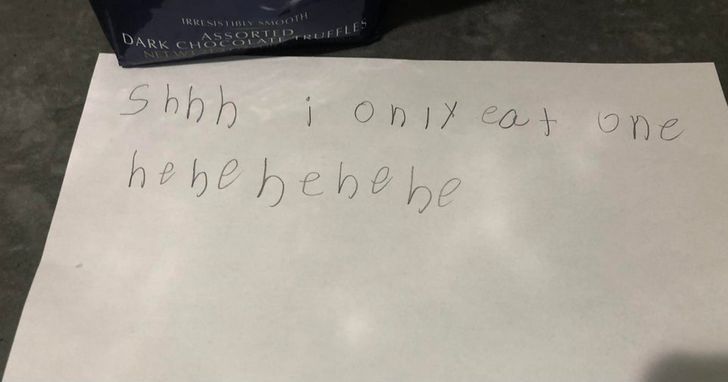 IRRESISTIBLY SMOOTH
ASSORTED
DARK CHOCOLATE TRUFFLES
NET WT
Shhh i only eat one
hehehehehehe